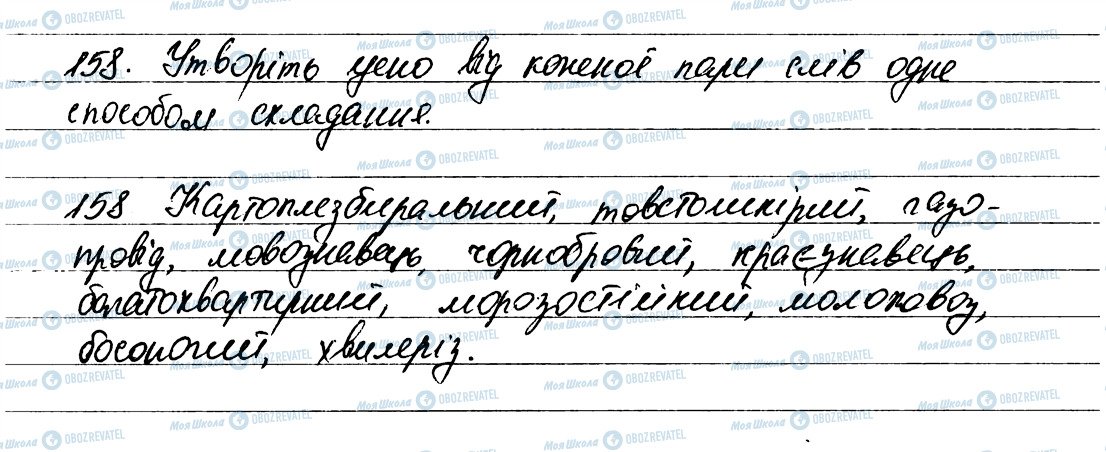 158. Утворіть усно від кожної пари слів одне
способом складання.
158 Картоплезбиральний, товстошкірий, газо-
провід, мовознавець, чорнобровий, краєзнавець,
багатоквартирний, морозостійкий, молоковоз,
босоногий, хвилеріз.